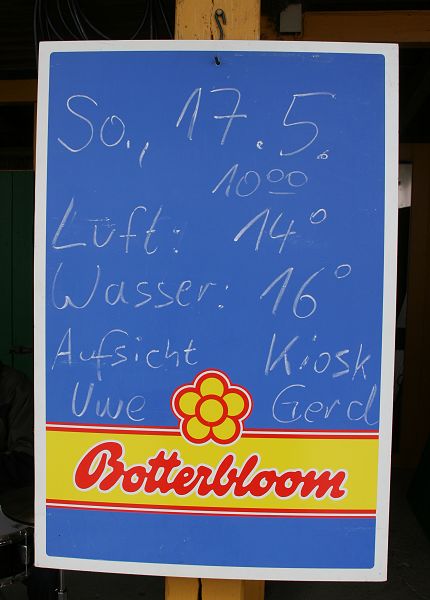 So., 17.5.
10⁰⁰
Luft: 14°
Wasser: 16°
Aufsicht Kiosk
Uwe Gerd
Botterbloom